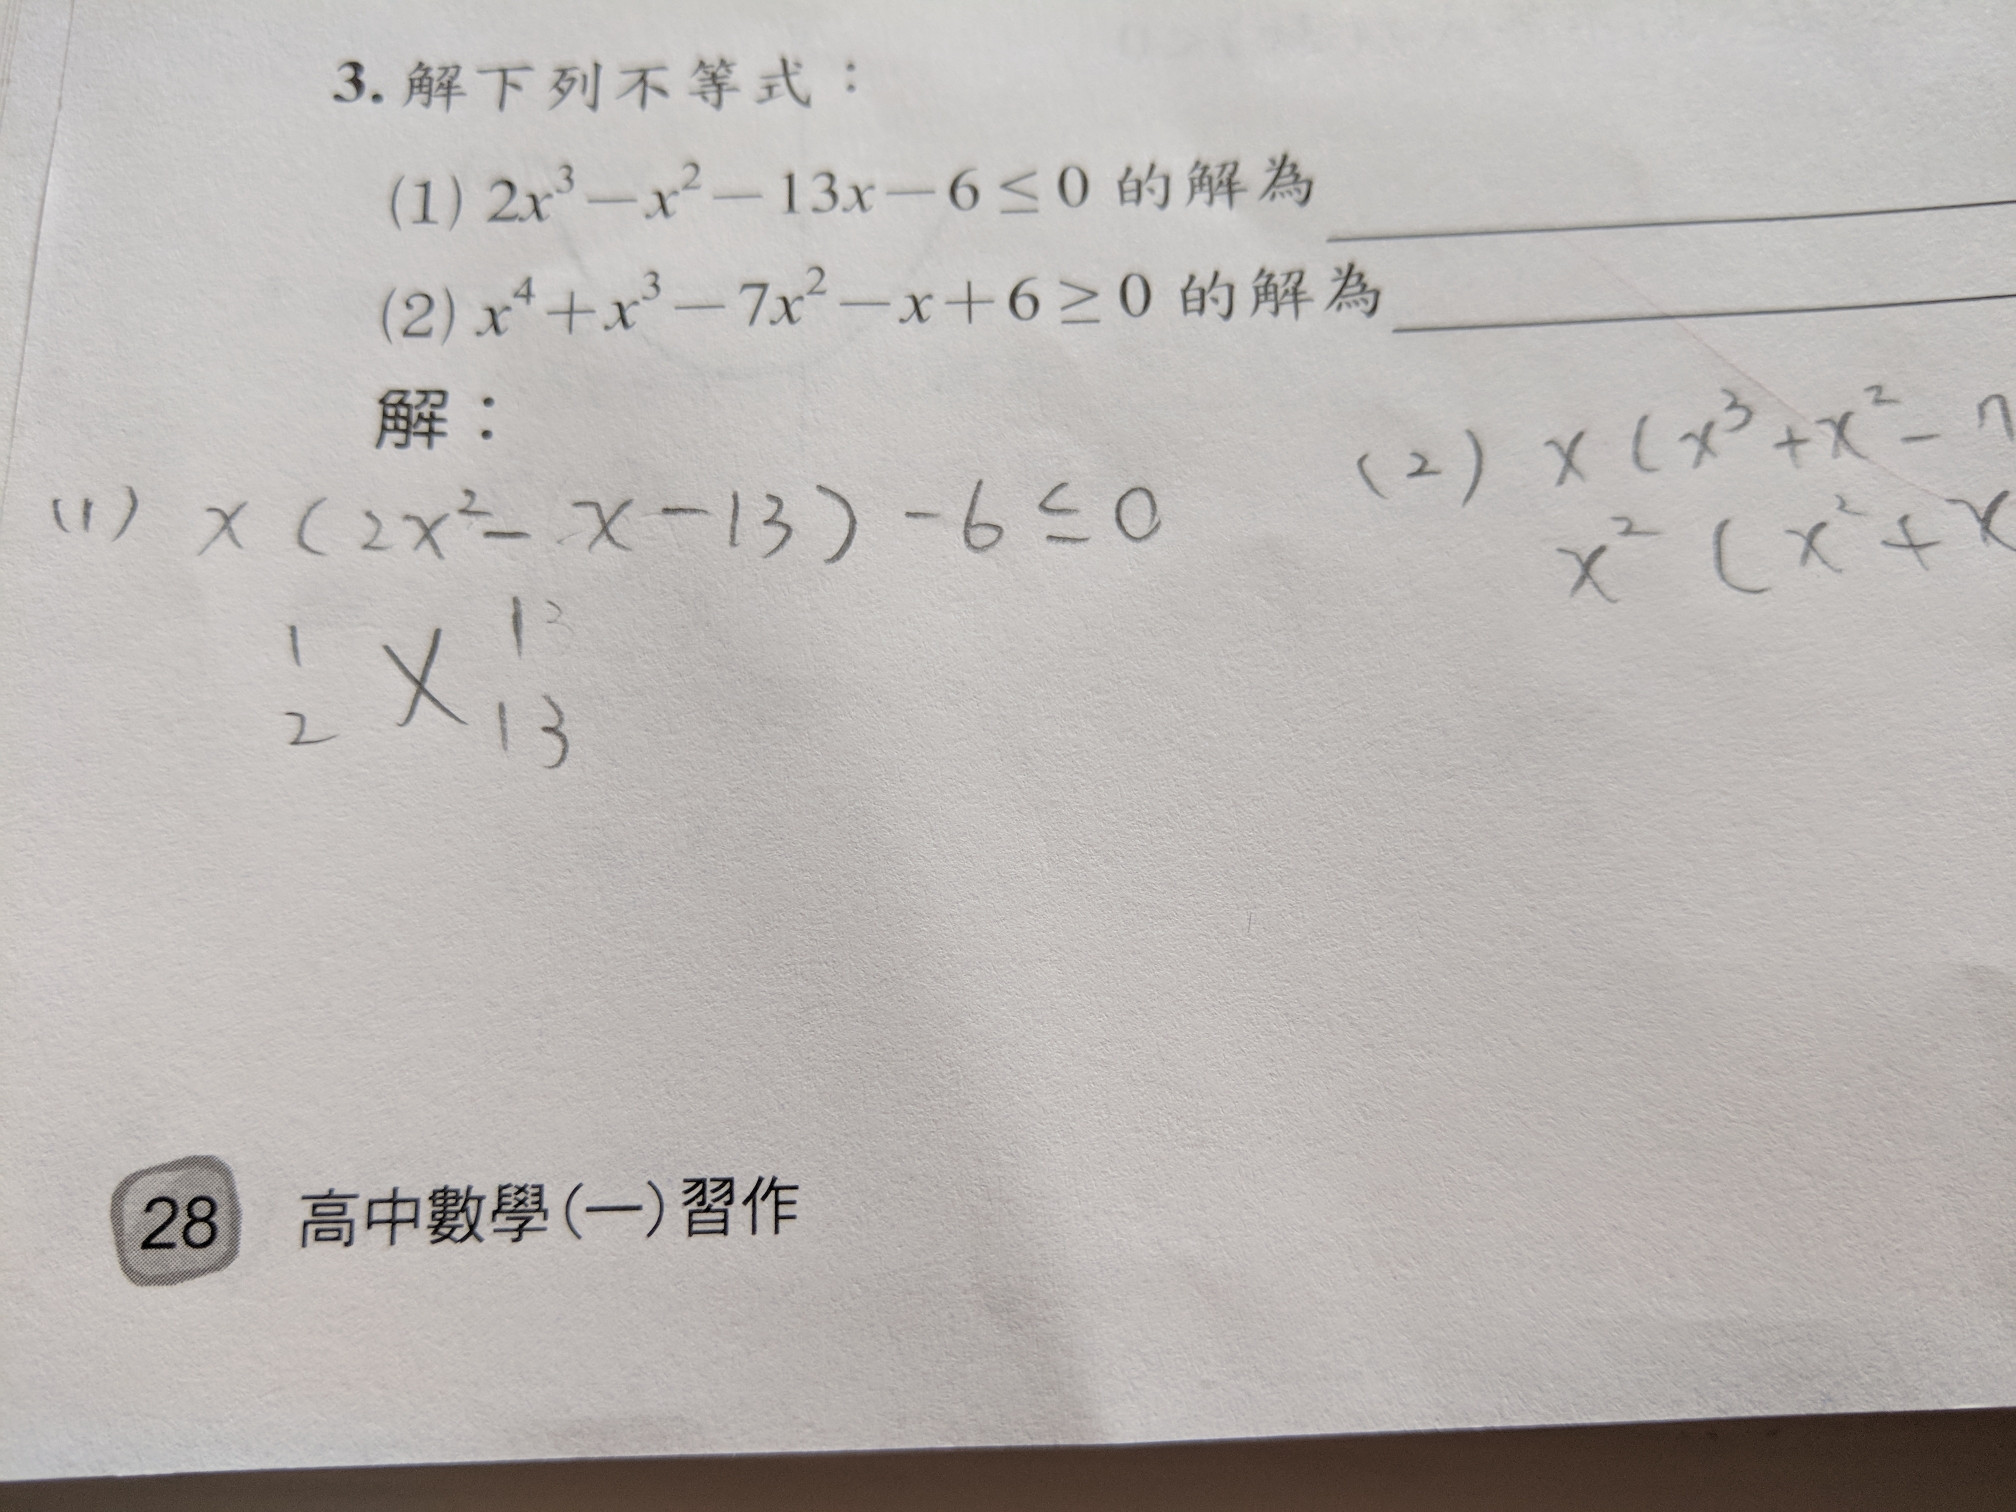 3. 解下列不等式：
(1) 2x³－x²－13x－6≤0 的解為
(2) x⁴＋x³－7x²－x＋6≥0 的解為
解：
(1) x(2x²-x-13)-6≤0
1 1
2 13
(2) x(x³+x²-7
x²(x²+x
28 高中數學(一)習作